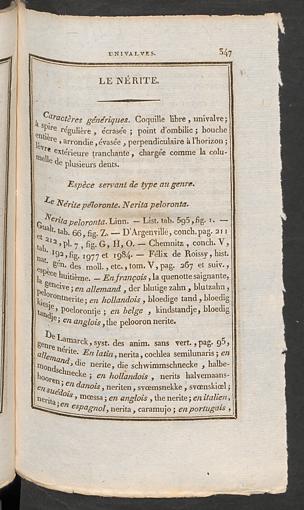 UNIVALVES. 347
LE NÉRITE.
Caractères génériques. Coquille libre, univalve;
à spire régulière, écrasée; point d'ombilic; bouche
entière, arrondie, évasée, perpendiculaire à l'horizon;
lèvre extérieure tranchante, chargée comme la colu-
melle de plusieurs dents.
Espèce servant de type au genre.
Le Nérite péloronte. Nerita peloronta.
Nerita peloronta. Linn. — List. tab. 595, fig. 1. —
Gualt. tab. 66, fig. Z. — D'Argenville, conch. pag. 211
et 212, pl. 7, fig. G, H, O. — Chemnitz, conch. V,
tab. 192, fig. 1977 et 1984. — Félix de Roissy, hist.
nat. gén. des moll., etc., tom. V, pag. 267 et suiv.,
espèce huitième. — En français, la quenotte saignante,
la gencive; en allemand, der blutige zahn, blutzahn,
pelorontnerite; en hollandois, bloedige tand, bloedig
kiesje, poelorontje; en belge, kindstandje, bloedig
tandje; en anglois, the pelooron nerite.
De Lamarck, syst. des anim. sans vert., pag. 95,
genre nérite. En latin, nerita, cochlea semilunaris; en
allemand, die nerite, die schwimmschnecke, halbe-
mondschnecke; en hollandois, nerits halvemaans-
hooren; en danois, neriten, svœmsnekke, svœmskiæl;
en suédois, mœssa; en anglois, the nerite; en italien,
nerita; en espagnol, nerita, caramujo; en portugais,